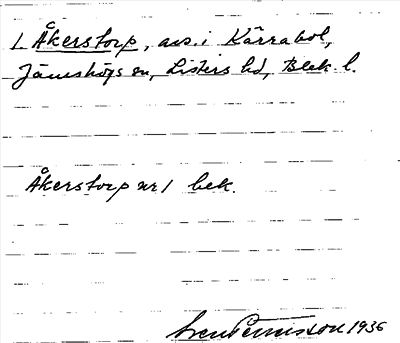 1 Åkerstorp, avs. i Kärrabol,
Jämshögs sn, Listers hd, Blek. l.
Åkerstorp nr 1 bek.
Sven Benson 1936